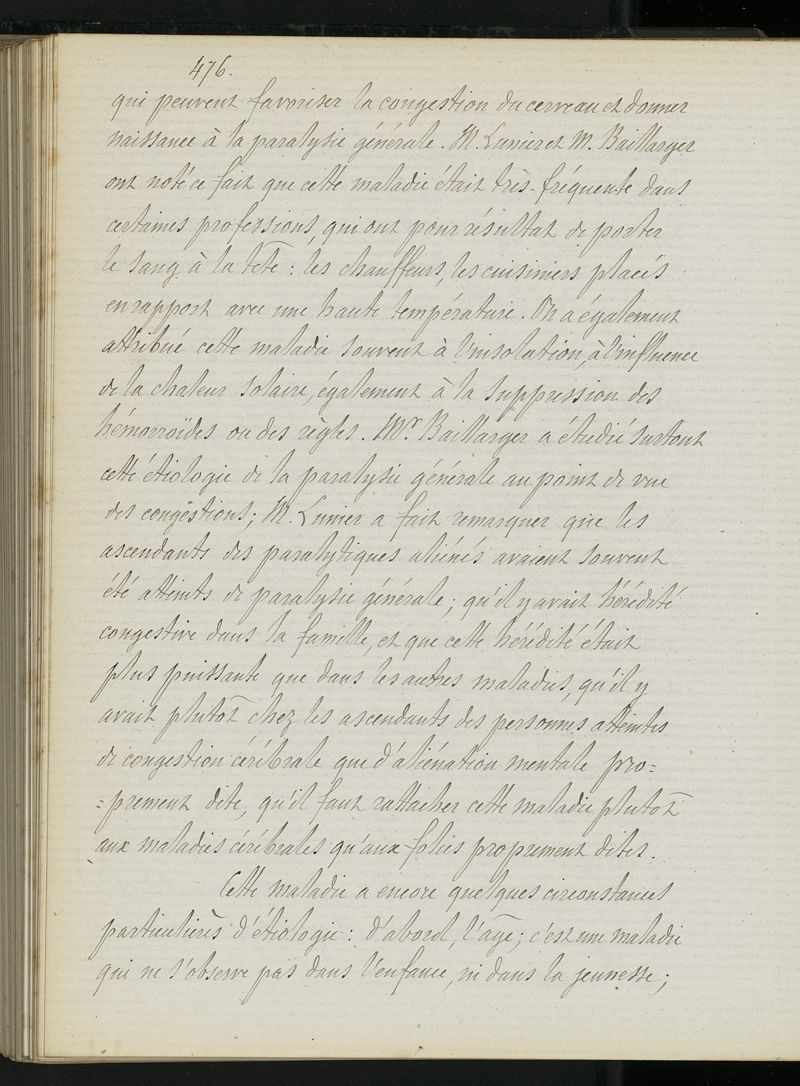 476.
qui peuvent favoriser la congestion du cerveau et donner
naissance à la paralysie générale. M. Lunier et M. Baillarger
ont noté ce fait que cette maladie était très-fréquente dans
certaines professions, qui ont pour résultat de porter
le sang à la tête : les chauffeurs, les cuisiniers placés
en rapport avec une haute température. On a également
attribué cette maladie souvent à l'insolution, à l'influence
de la chaleur solaire, également à la suppression des
hémorroïdes ou des règles. Mr Baillarger a étudié surtout
cette étiologie de la paralysie générale au point de vue
des congestions; M. Lunier a fait remarquer que les
ascendants des paralytiques aliénés avaient souvent
été atteints de paralysie générale; qu'il y avait hérédité
congestive dans la famille, et que cette hérédité était
plus puissante que dans les autres maladies, qu'il y
avait plutôt chez les ascendants des personnes atteintes
de congestion cérébrale que d'aliénation mentale pro=
=prement dite, qu'il faut rattacher cette maladie plutôt
aux maladies cérébrales qu'aux folies proprement dites.
Cette maladie a encore quelques circonstances
particulières d'étiologie : d'abord, l'âge; c'est une maladie
qui ne s'observe pas dans l'enfance, ni dans la jeunesse;